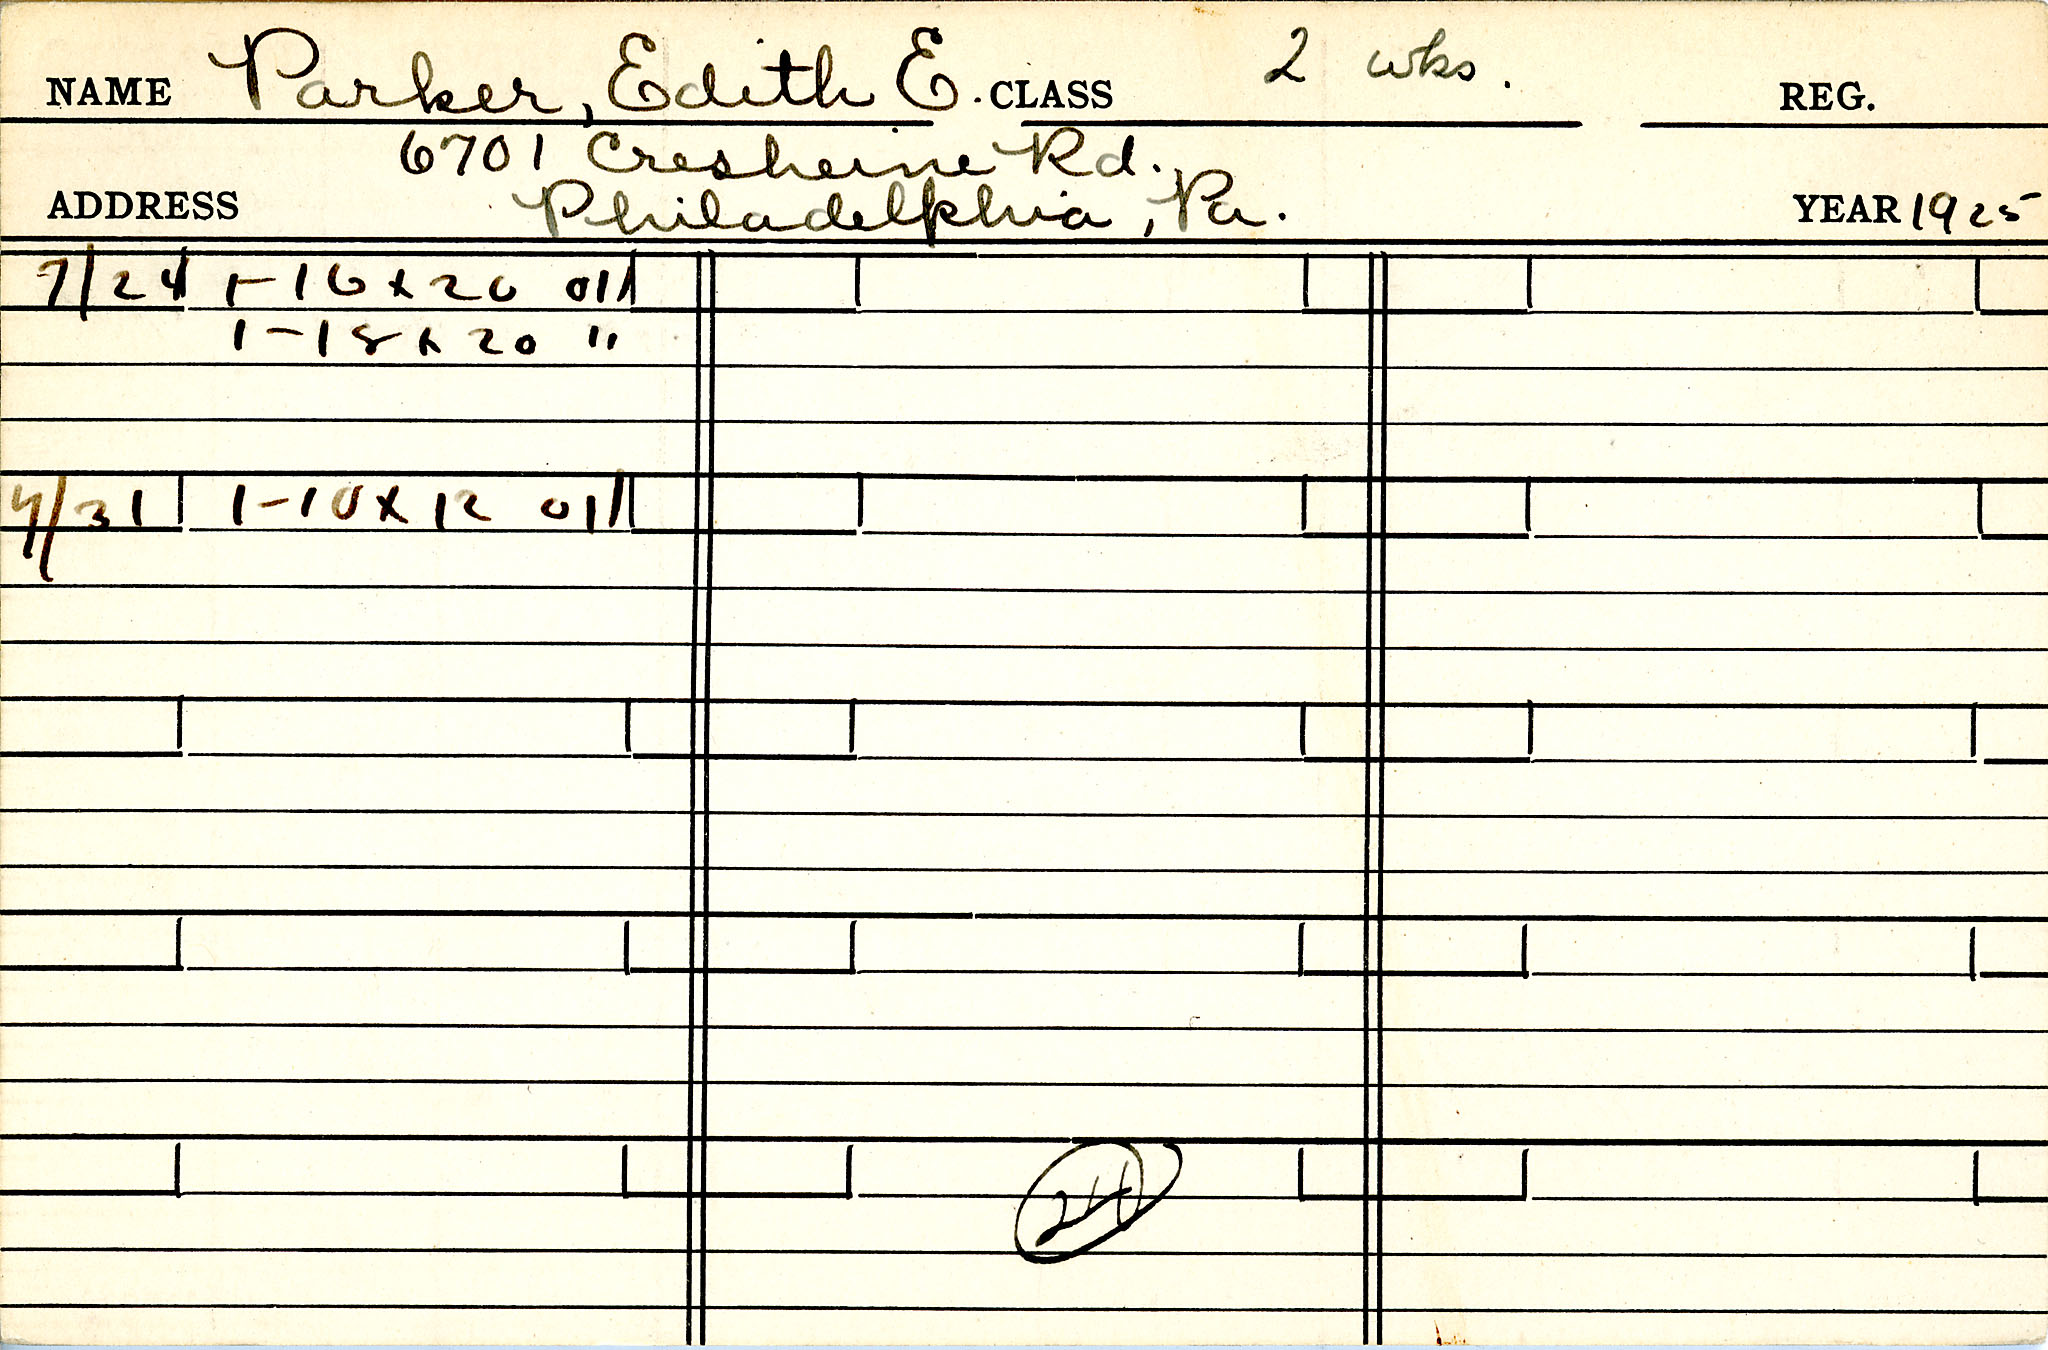 NAME Parker, Edith E. CLASS 2 wks. REG.
6701 Cresheine Rd.
ADDRESS Philadelphia, Pa. YEAR 1925
7/24 1-16x20 oil
1-18x20 "
7/31 1-10x12 oil
24